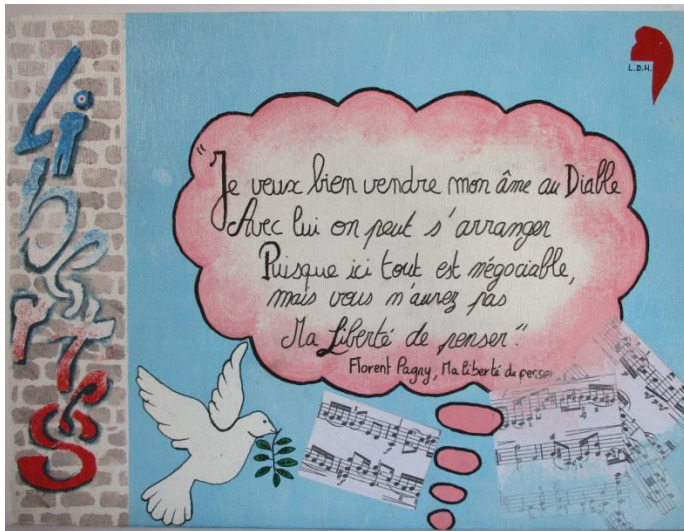 Libertés
L.D.H.
"Je veux bien vendre mon âme au Diable
Avec lui on peut s'arranger
Puisque ici tout est négociable,
mais vous n'aurez pas
Ma Liberté de penser"
Florent Pagny, Ma liberté de penser